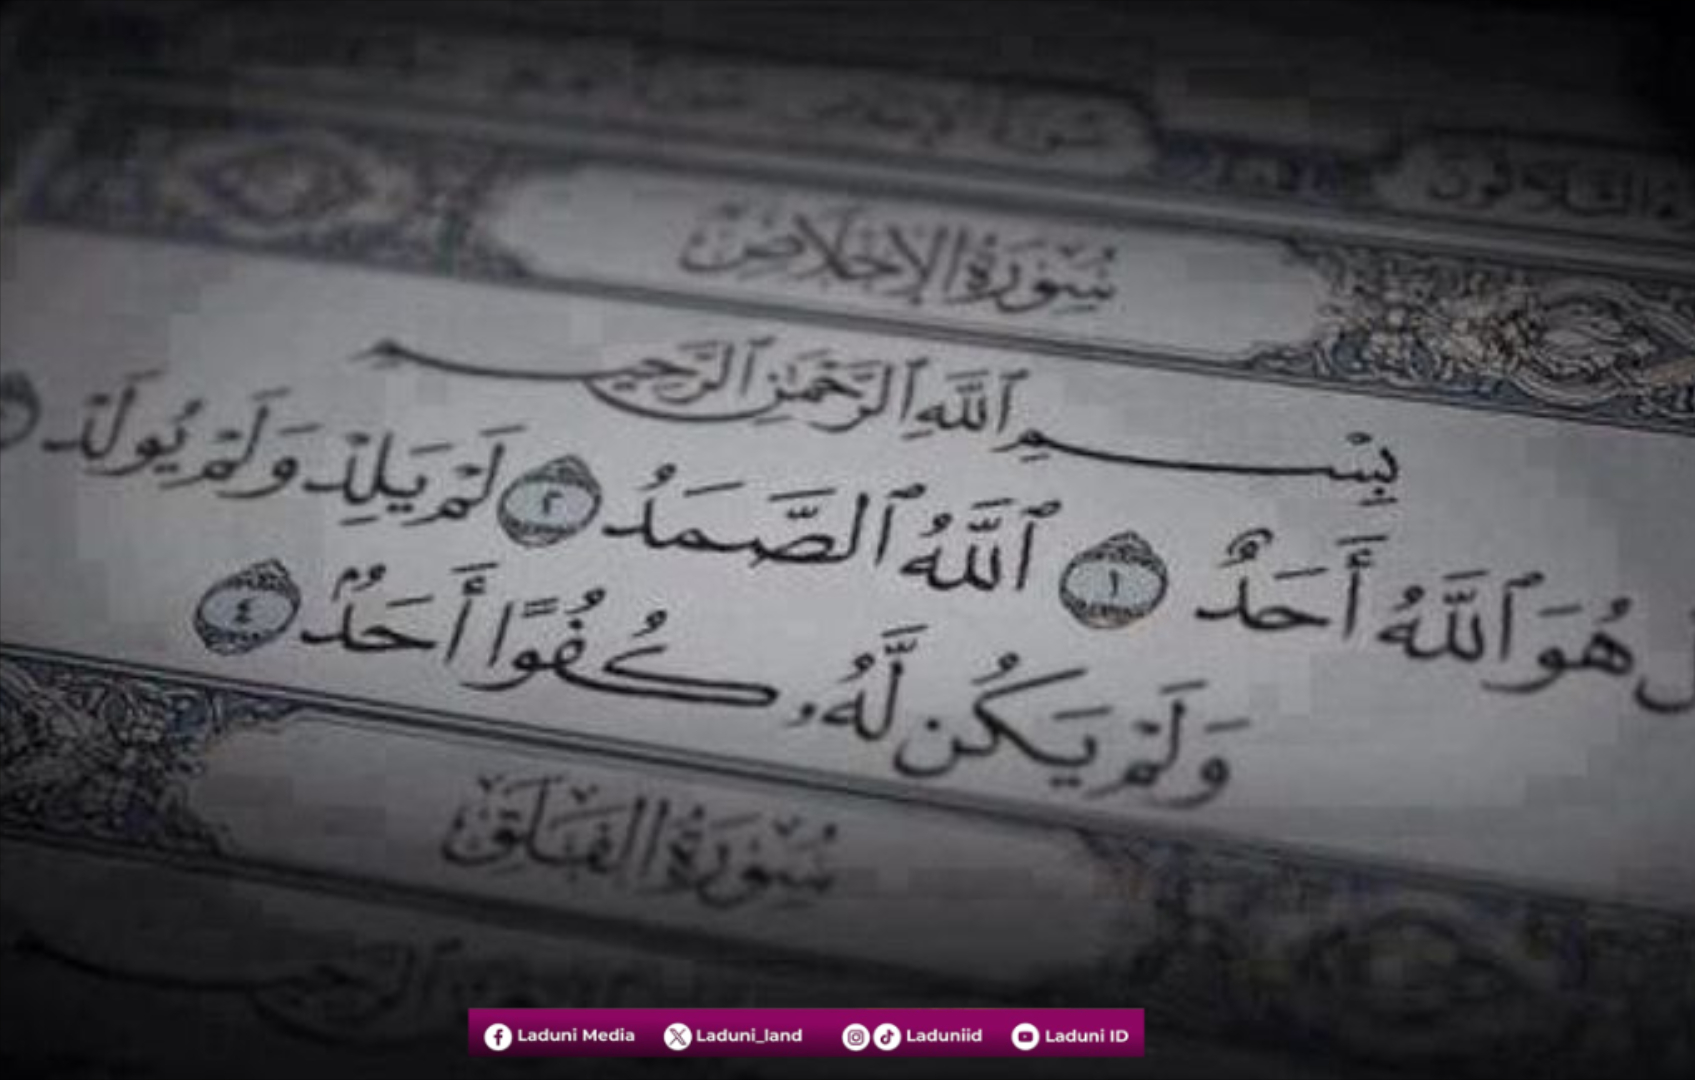 سورة الإخلاص
بِسْمِ ٱللَّهِ ٱلرَّحْمَٰنِ ٱلرَّحِيمِ
هُوَ ٱللَّهُ أَحَدٌ ١ ٱللَّهُ ٱلصَّمَدُ ٢ لَمْ يَلِدْ وَلَمْ يُولَدْ
وَلَمْ يَكُن لَّهُۥ كُفُوًا أَحَدٌۢ ٤
سورة الفلق
Laduni Media Laduni_land Laduniid Laduni ID